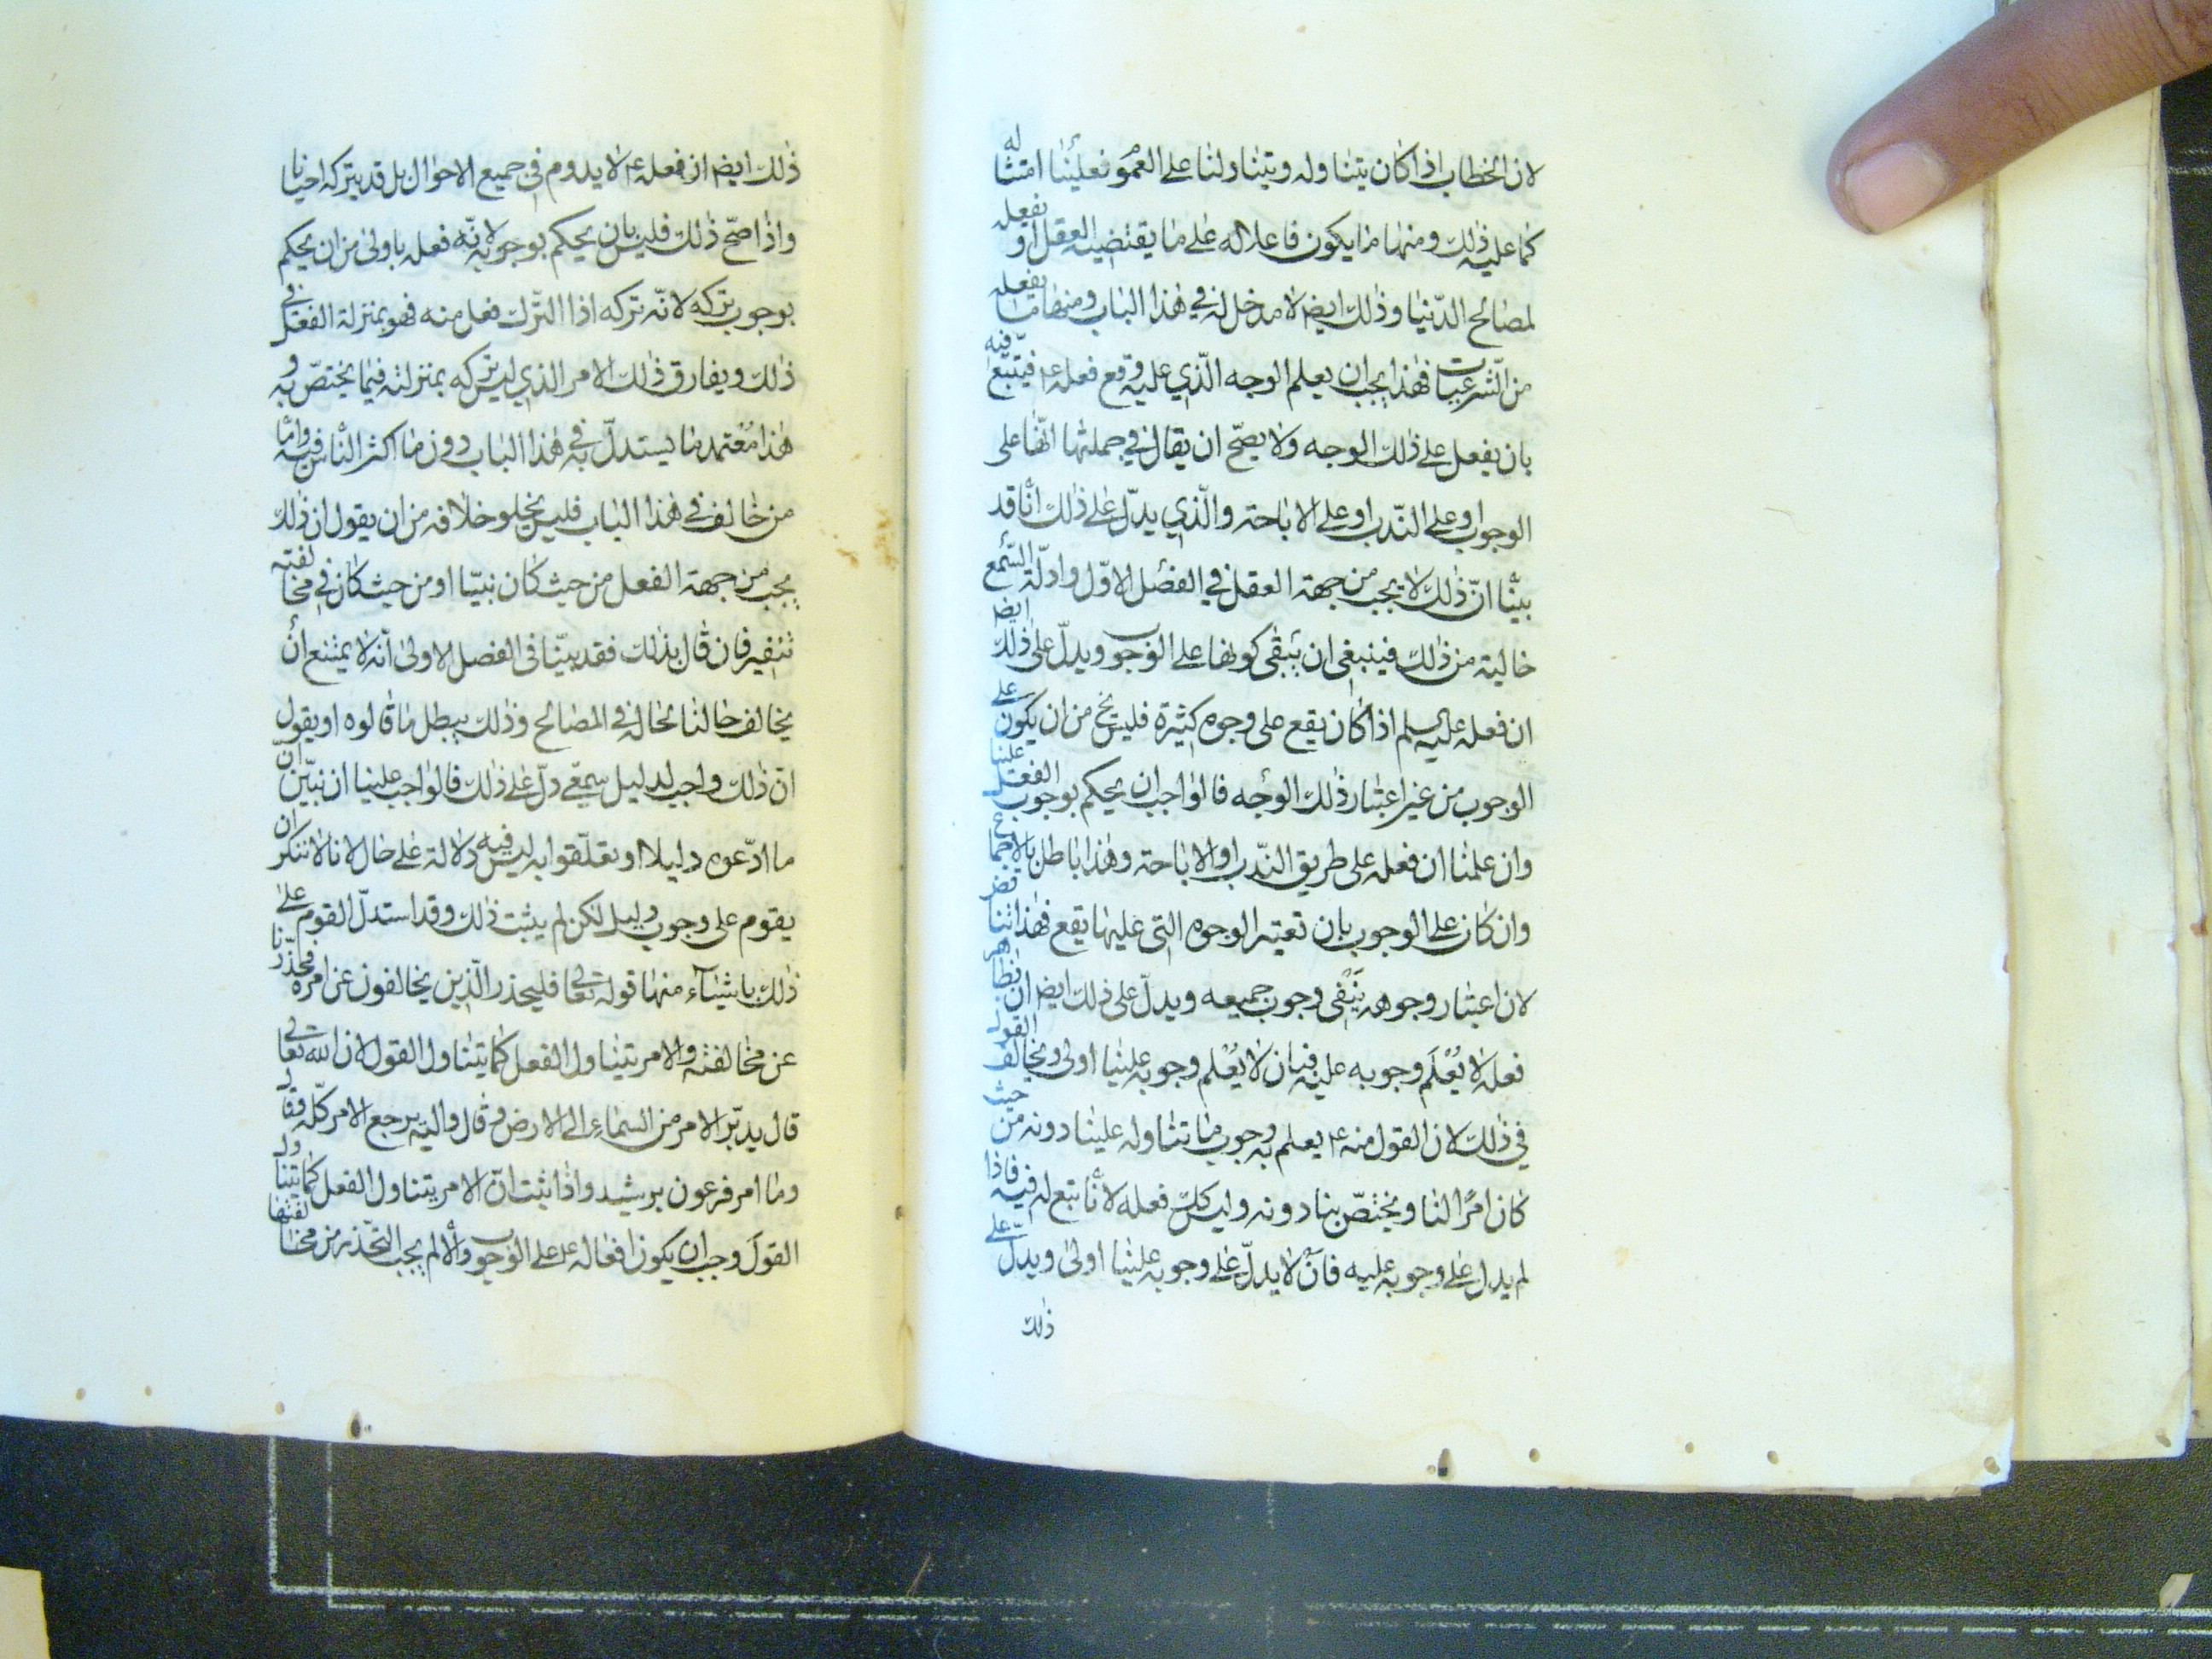 لان الخطاب اذا كان يتناوله ويتناولنا على العموم فعلينا امتثاله
كما عليه ذلك ومنها ما يكون فاعلا له على ما يقتضيه العقل او يفعله
لمصالح الدنيا وذلك ايض لا مدخل له في هذا الباب ومنها ما يفعله
من الشرعيات فهذا يجب ان يعلم الوجه الذي عليه وقع فعله ع فيتبع فيه
بان يفعل على ذلك الوجه ولا يصح ان يقال في جملتها انها على
الوجوب او على الندب او على الاباحة والذي يدل على ذلك انا قد
بينا ان ذلك لا يجب من جهة العقل في الفصل الاول وادلة السمع
خالية من ذلك فينبغي ان يبقى كونها على الوجوب ويدل على ذلك ايض
ان فعله عليه السلم اذا كان يقع على وجوه كثيرة فليس يخ من ان يكون على
الوجوب من غير اعتبار ذلك الوجه فالواجب ان يحكم بوجوب الفعل علينا
وان علمنا ان فعله على طريق الندب او الاباحة وهذا باطل بالاجماع
وان كان على الوجوب بان تعتبر الوجوه التي عليها يقع فهذا تناقض
لان اعتبار وجوهه ينفي وجوب جميعه ويدل على ذلك ايض ان
فعله لا يعلم وجوبه عليه فبان لا يعلم وجوبه علينا اولى ويخالف القول
في ذلك لان القول منه ع يعلم به وجوب ما تناوله علينا دونه من حيث
كان امرا لنا ويختص بنا دونه وليس كك فعله لانا تبع له فيه فاذا
لم يدل على وجوبه عليه فان لا يدل على وجوبه علينا اولى ويدل على
ذلك
ذلك ايض ان فعله ع لا يدوم في جميع الاحوال بل قد يتركه احيانا
واذا صح ذلك فليس بان يحكم بوجوبه لانه فعله باولى من ان يحكم
بوجوب تركه لانه تركه اذا الترك فعل منه فهو بمنزلة الفعل في
ذلك ويفارق ذلك الامر الذي ليس تركه بمنزلته فيما يختص به و
هذا معتمد ما يستدل به في هذا الباب دون ما اكثر الناس فيه واما
من خالف في هذا الباب فليس يخلو خلافه من ان يقول ان ذلك
يجب من جهة الفعل من حيث كان نبيا او من حيث كان في مخالفته
تنفير فان قال بذلك فقد بينا في الفصل الاولى انه لا يمتنع ان
يخالف حالنا بحاله في المصالح وذلك يبطل ما قالوه او يقول
ان ذلك واجب لدليل سمعي دل على ذلك فالواجب علينا ان نبين ان
ما ادعوه دليلا او تعلقوا به ليس فيه دلالة على حال لانا لا ننكر ان
يقوم على وجوب دليل لكن لم يثبت ذلك وقد استدل القوم على
ذلك باشياء منها قوله تعالى فليحذر الذين يخالفون عن امره فحذرنا
عن مخالفته والامر يتناول الفعل كما يتناول القول لان الله تعالى
قال يدبر الامر من السماء الى الارض وقال واليه يرجع الامر كله وقال
وما امر فرعون برشيد واذا ثبت ان الامر يتناول الفعل كما يتناول
القول وجب ان يكون افعاله ع على الوجوب والا لم يجب التحذر من مخالفتها